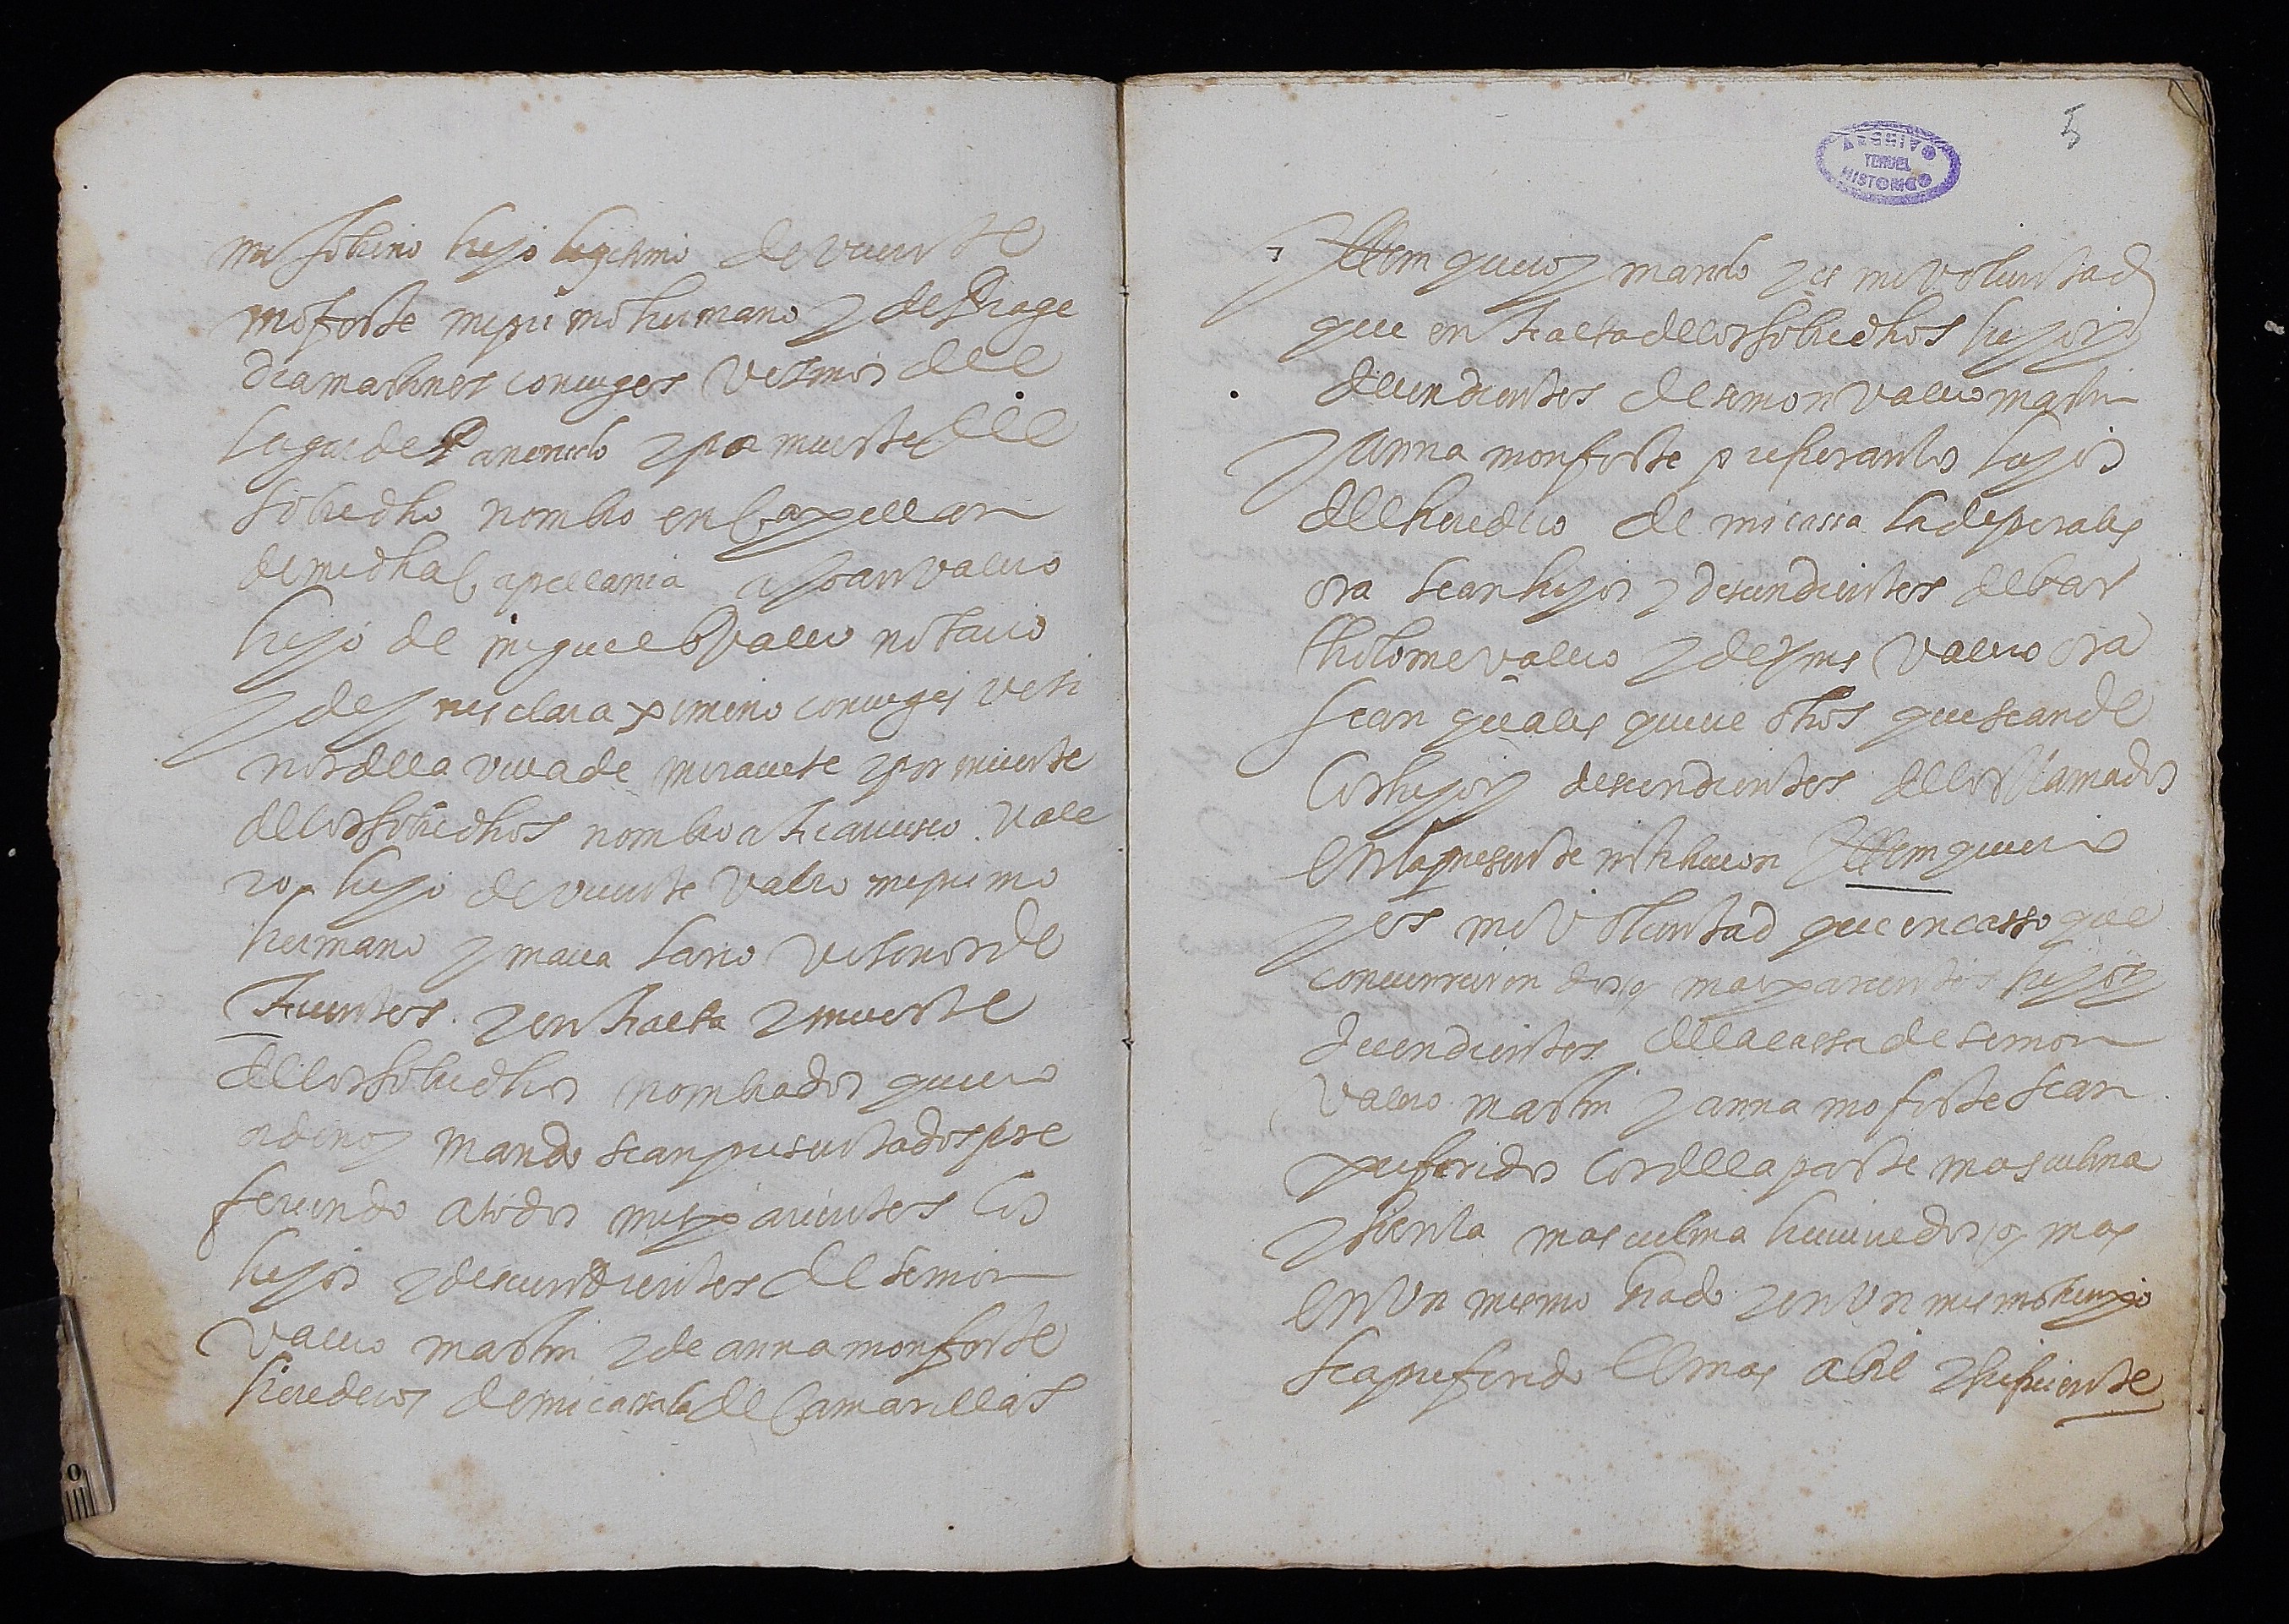 mi sobrino hijo legitimo de vicente
moforte mi primo hermano y de Briage
dia martines coniuges vesinos del
lugar de Panerudo y por muerte del
sobredho nombro en Capellan
de mi dha Capellania a Joan valero
hijo de miguel Valero notario
y de ynes clara ximeno coniuges vesi
nos de la villa de miravete y por muerte
de los sobredhos nombro a Francisco Vale
ro hijo de vicente Valero mi primo
hermano y maria sario vesinos de
Fuentes y en Falta y muerte
de los sobredhos nombrados quiero
ordeno y mando sean presentados pre
feriendo a todos mis parientes los
hijos y descendientes de simon
valero martin y de anna monforte
herederos de mi casa la de Camarillas
ARCHIVO
TERUEL
HISTORICO
5
Ittem quiero y mando y es mi voluntad
que en Falta de los sobredhos hijos y
decendientes de simon valero martin
y anna monforte prefieran los hijos
del heredero de mi cassa la de perales
ora sean hijos y desendientes de bar
tholome valero y de ynes valero ora
sean quales quiere otros que sean de
los hijos y descendientes de los llamados
en la presente institucion Ittem quiero
y es mi voluntad que en casso que
concurrieren dos o mas parientes hijos y
decendientes de la cassa de simon
valero martin y anna moforte sean
preferidos los de la parte masculina
y si en la masculina huviere dos o mas
en un mesmo grado y en un mismo tiempo
sea preferido el mas abil y suficiente